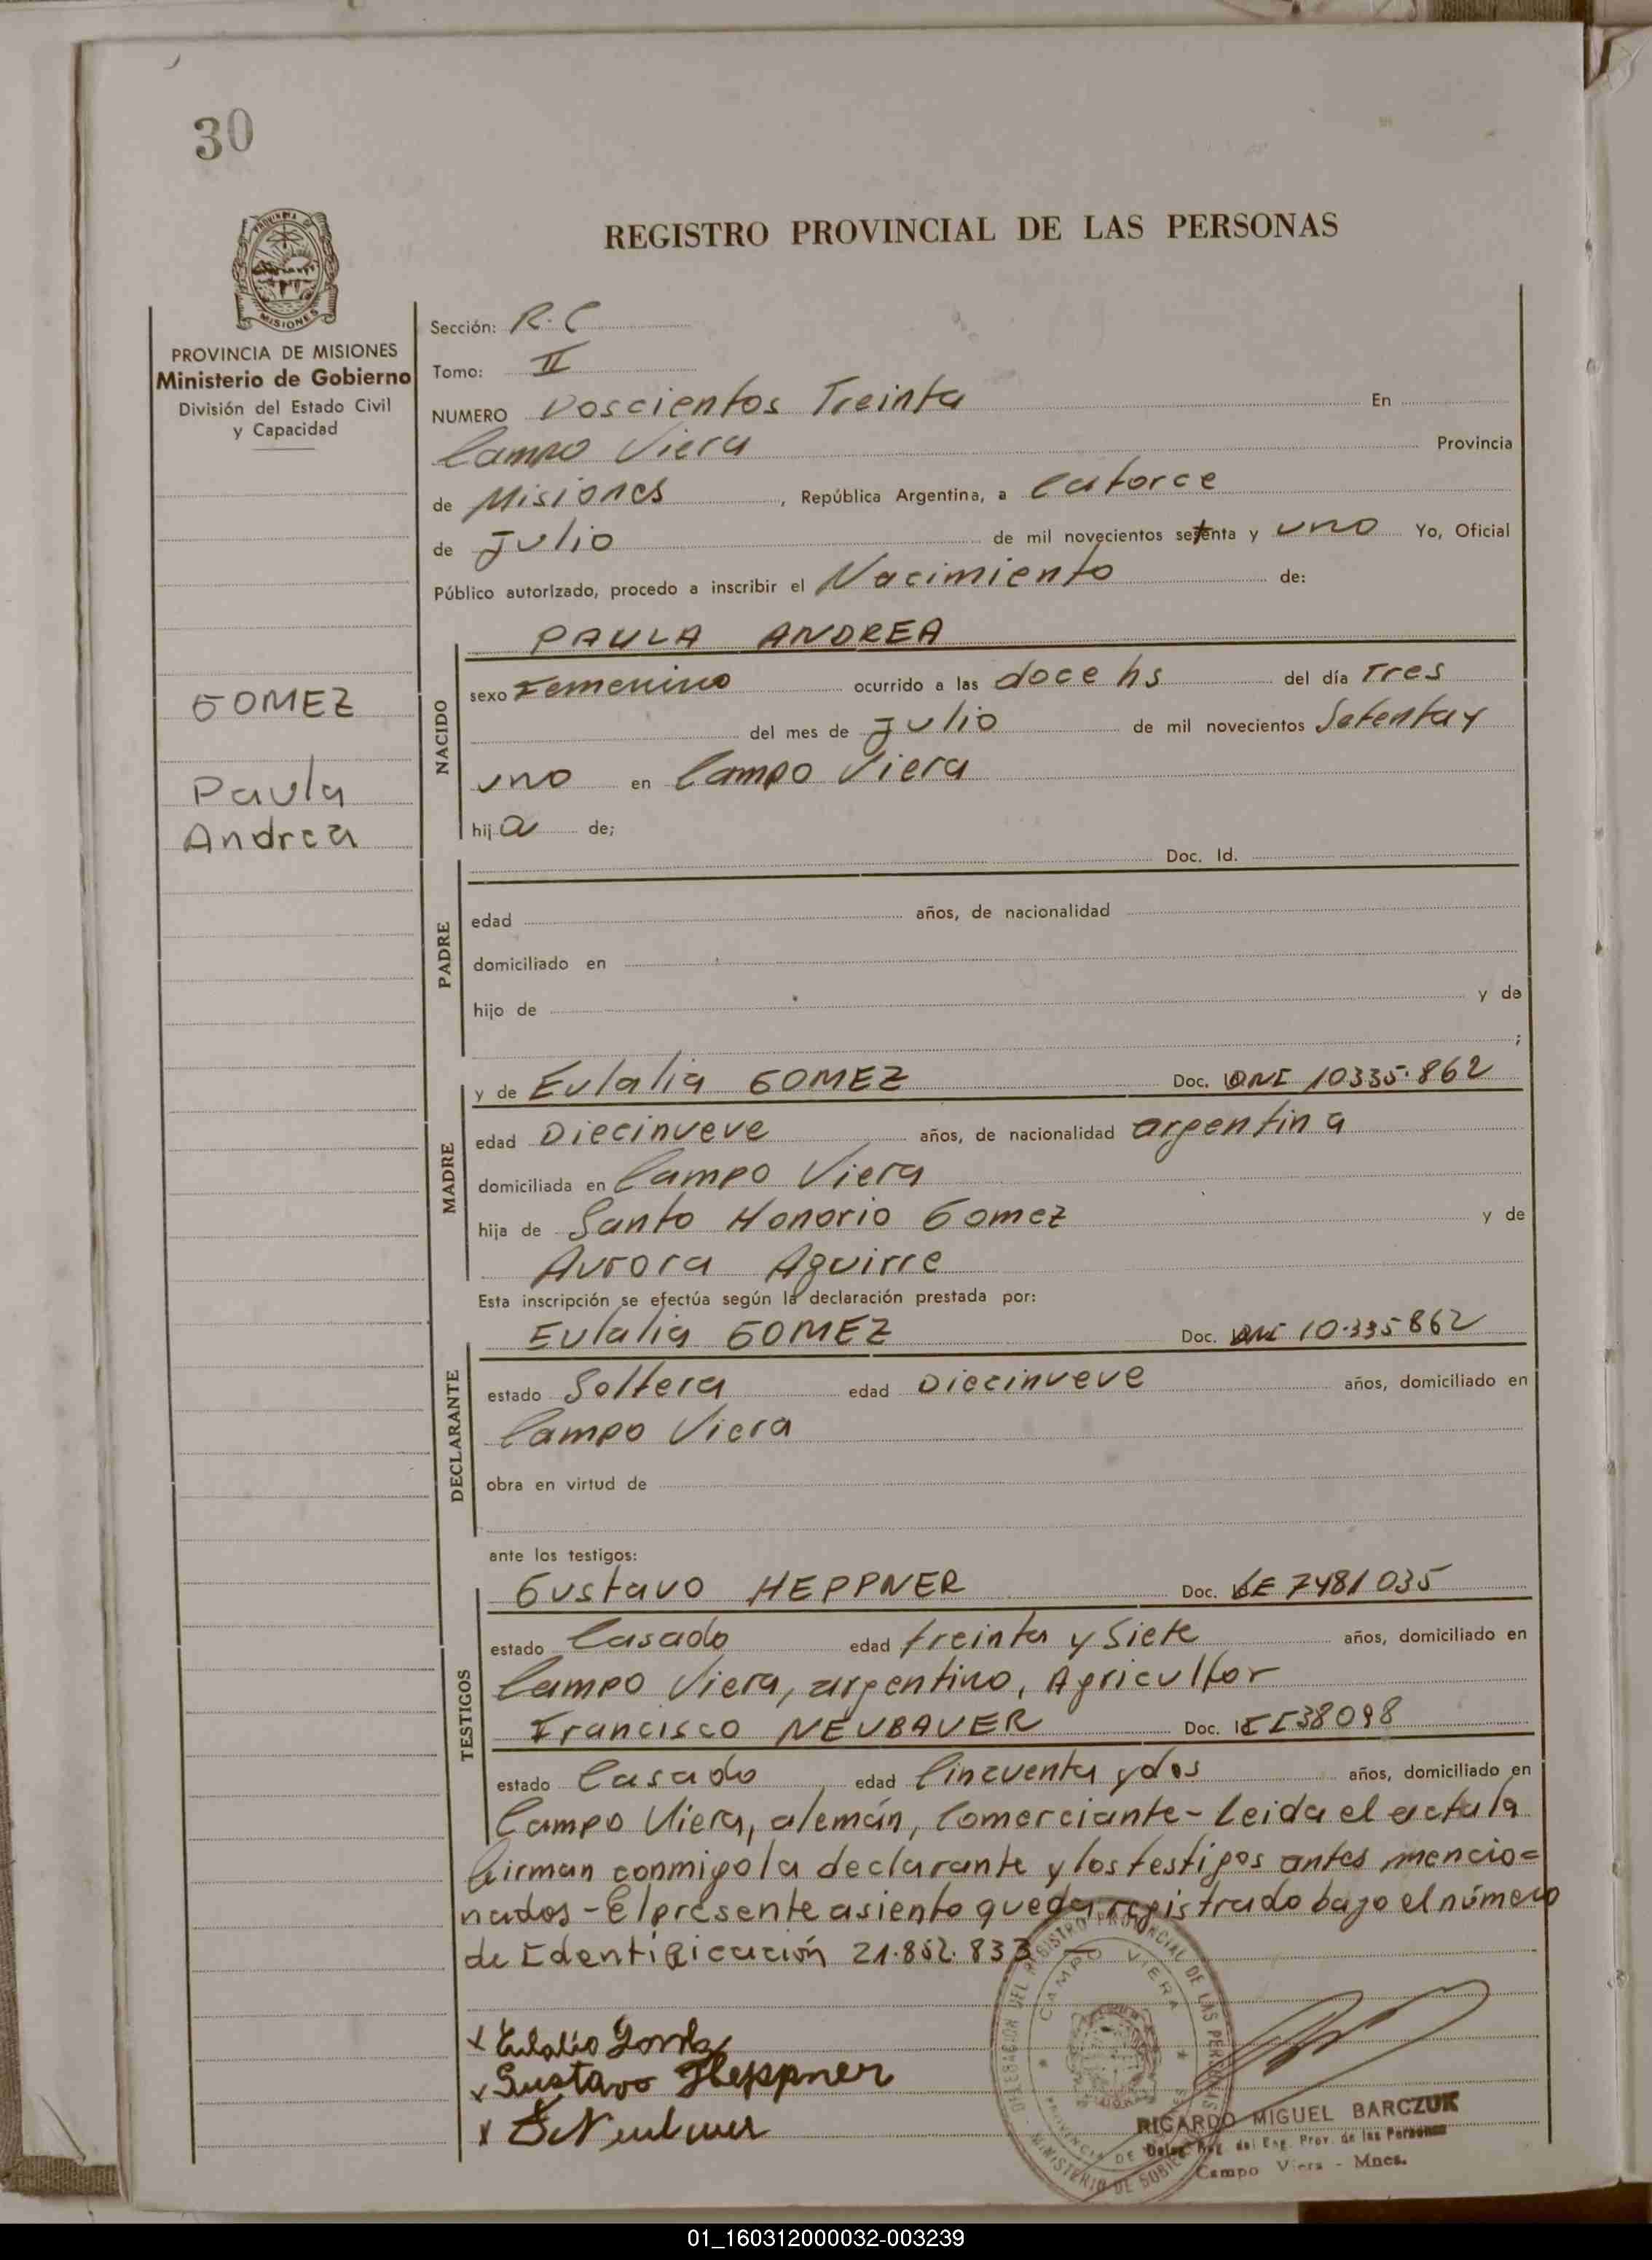 30
REGISTRO PROVINCIAL DE LAS PERSONAS
MISIONES
PROVINCIA DE MISIONES
Ministerio de Gobierno
División del Estado Civil
y Capacidad
GOMEZ
Paula
Andrea
Sección: R. C
Tomo: II
NUMERO Doscientos Treinta En
Campo Viera Provincia
de Misiones, República Argentina, a Catorce
de Julio de mil novecientos setenta y uno Yo, Oficial
Público autorizado, procedo a inscribir el Nacimiento de:
PAULA ANDREA
NACIDO
sexo Femenino ocurrido a las doce hs del día Tres
del mes de Julio de mil novecientos Setenta y
uno en Campo Viera
hija de;
PADRE
Doc. Id.
edad años, de nacionalidad
domiciliado en
hijo de y de
;
MADRE
y de Eulalia GOMEZ Doc. DNI 10335.862
edad Diecinueve años, de nacionalidad argentina
domiciliada en Campo Viera
hija de Santo Honorio Gomez y de
Aurora Aguirre
Esta inscripción se efectúa según la declaración prestada por:
DECLARANTE
Eulalia GOMEZ Doc. DNI 10.335862
estado Soltera edad Diecinueve años, domiciliado en
Campo Viera
obra en virtud de
ante los testigos:
TESTIGOS
Gustavo HEPPNER Doc. LE 7481035
estado Casado edad treinta y Siete años, domiciliado en
Campo Viera, argentino, Agricultor
Francisco NEUBAUER Doc. CI 38098
estado Casado edad Cincuenta y dos años, domiciliado en
Campo Viera, alemán, Comerciante - Leida el acta la
firman conmigo la declarante y los testigos antes mencio=
nados - El presente asiento queda registrado bajo el número
de Identificación 21.852.833
x Eulalia Gomez
x Gustavo Heppner
x
DELEGACION DEL REGISTRO PROVINCIAL DE LAS PERSONAS
CAMPO VIERA
PROVINCIA DE MISIONES
MINISTERIO DE GOBIERNO
RICARDO MIGUEL BARCZUK
Reg. Prov. de las Personas
Campo Viera - Mnes.
01_160312000032-003239